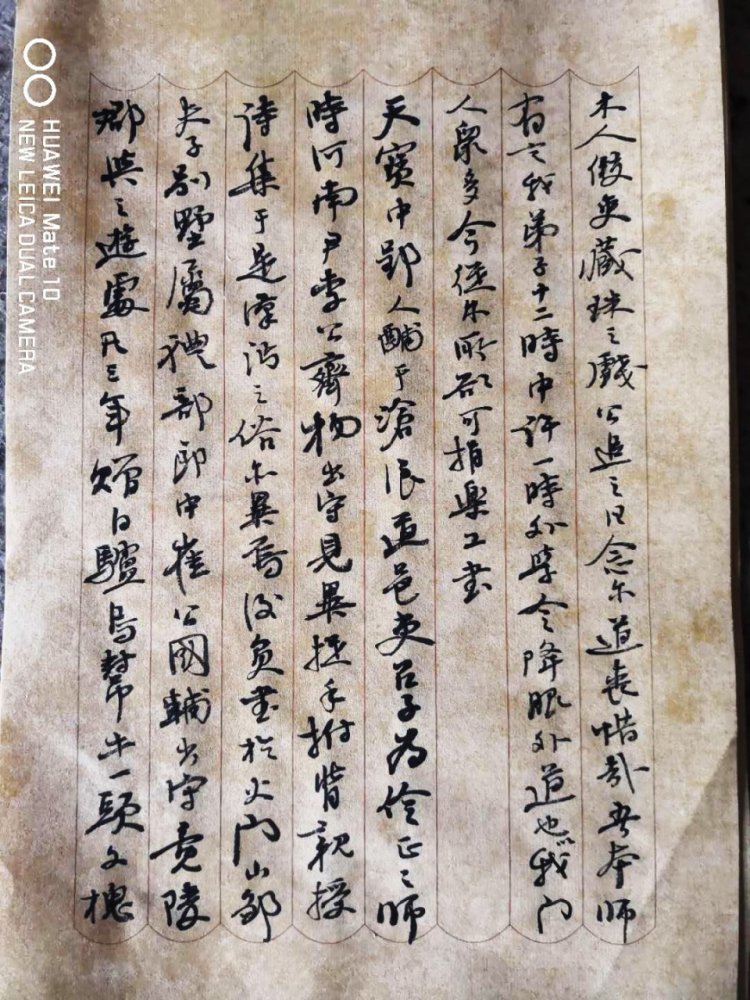 木人假吏藏珠之戲公追之曰念尔道喪惜哉吾本師
有言我弟子十二時中許一時外學令降眼外道也我門
人衆多今從尔所欲可捐樂工書
天寶中郢人酺于滄浪道邑吏召子為伶正之師
時河南尹李公齊物出守見異捉手拊背親授
詩集于是漢沔之俗亦異焉後負書於火門山鄒
夫子別墅屬禮部郎中崔公國輔出守竟陵
郡與之遊處凡三年贈白驢烏幇牛一頭文槐
HUAWEI Mate 10
NEW LEICA DUAL CAMERA